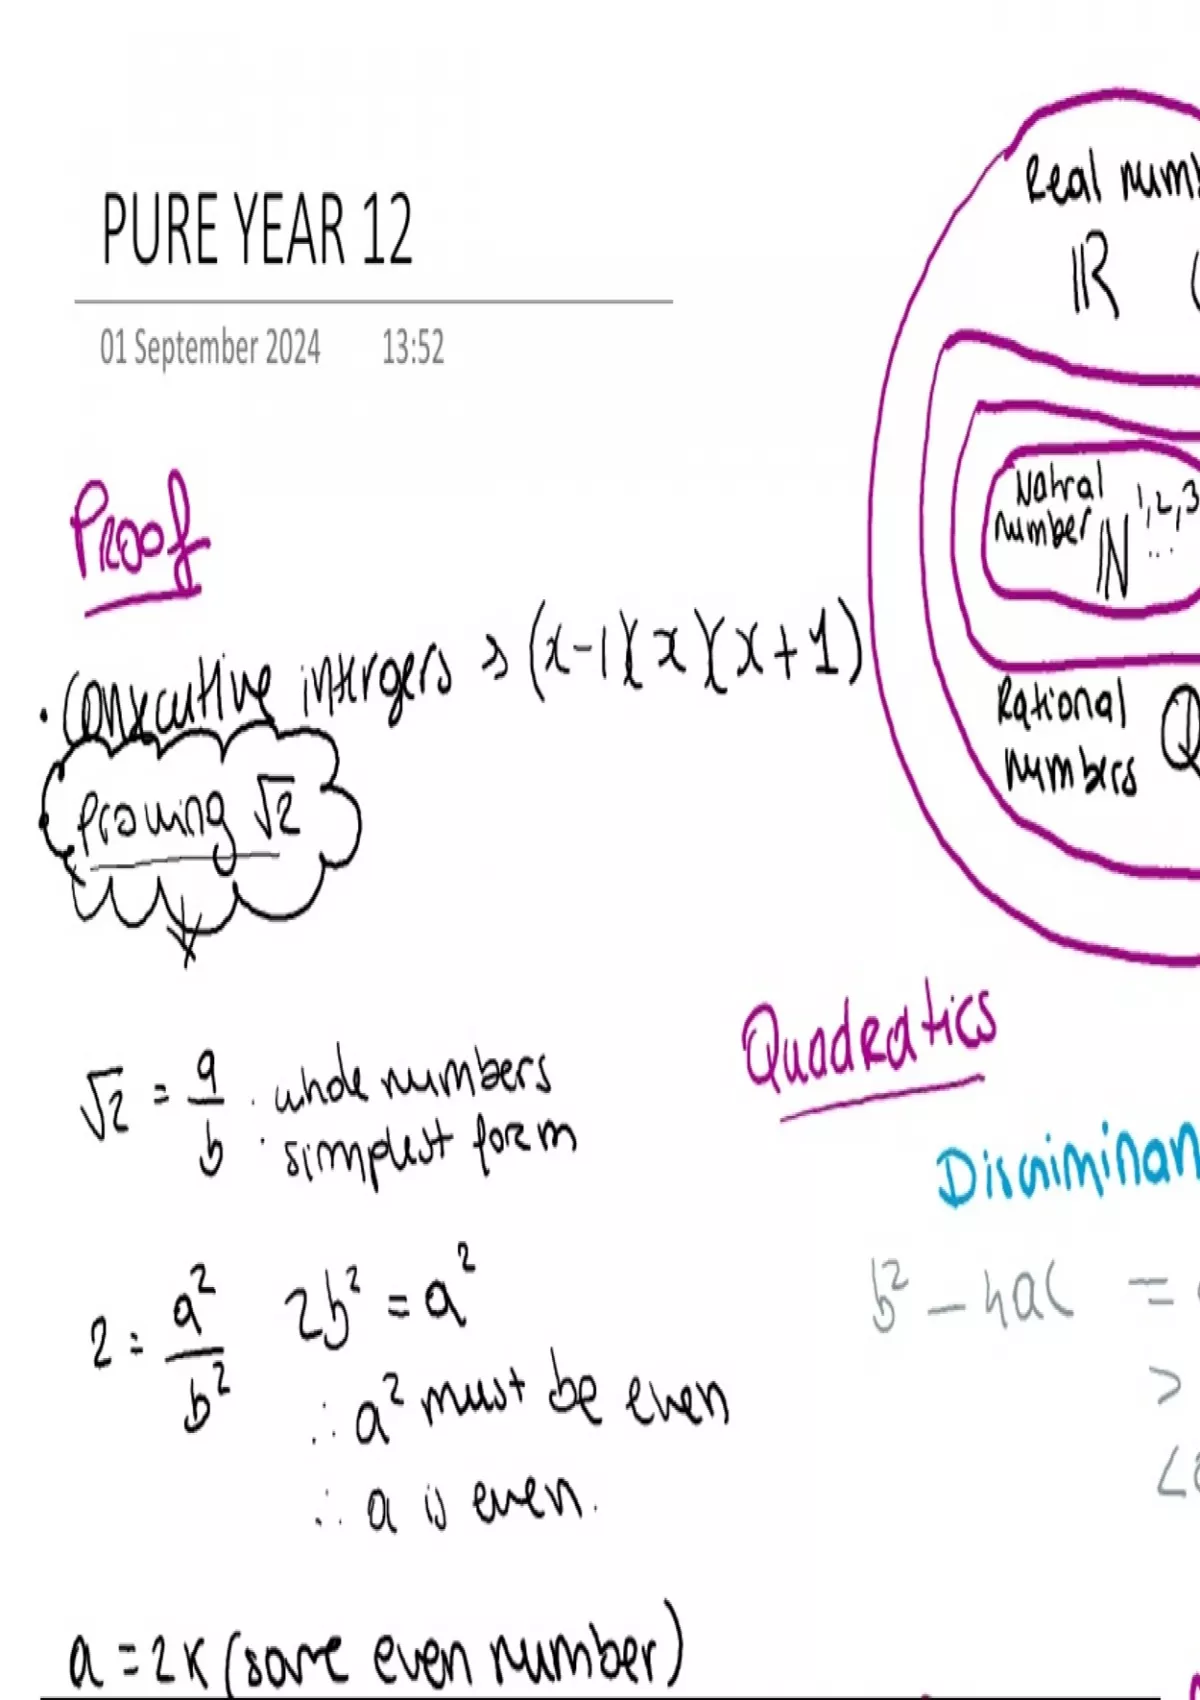 PURE YEAR 12
01 September 2024 13:52
Proof
· Consecutive intergers → (x-1)(x)(x+1)
· Proving √2
√2 = a/b · whole numbers
· simplest form
2 = a²/b² 2b² = a²
∴ a² must be even
∴ a is even.
a = 2k (some even number)
Real numb
ℝ (
Natral
number ℕ 1,2,3
...
Rational
numbers ℚ
Quadratics
Discriminan
b² - 4ac =
>
<